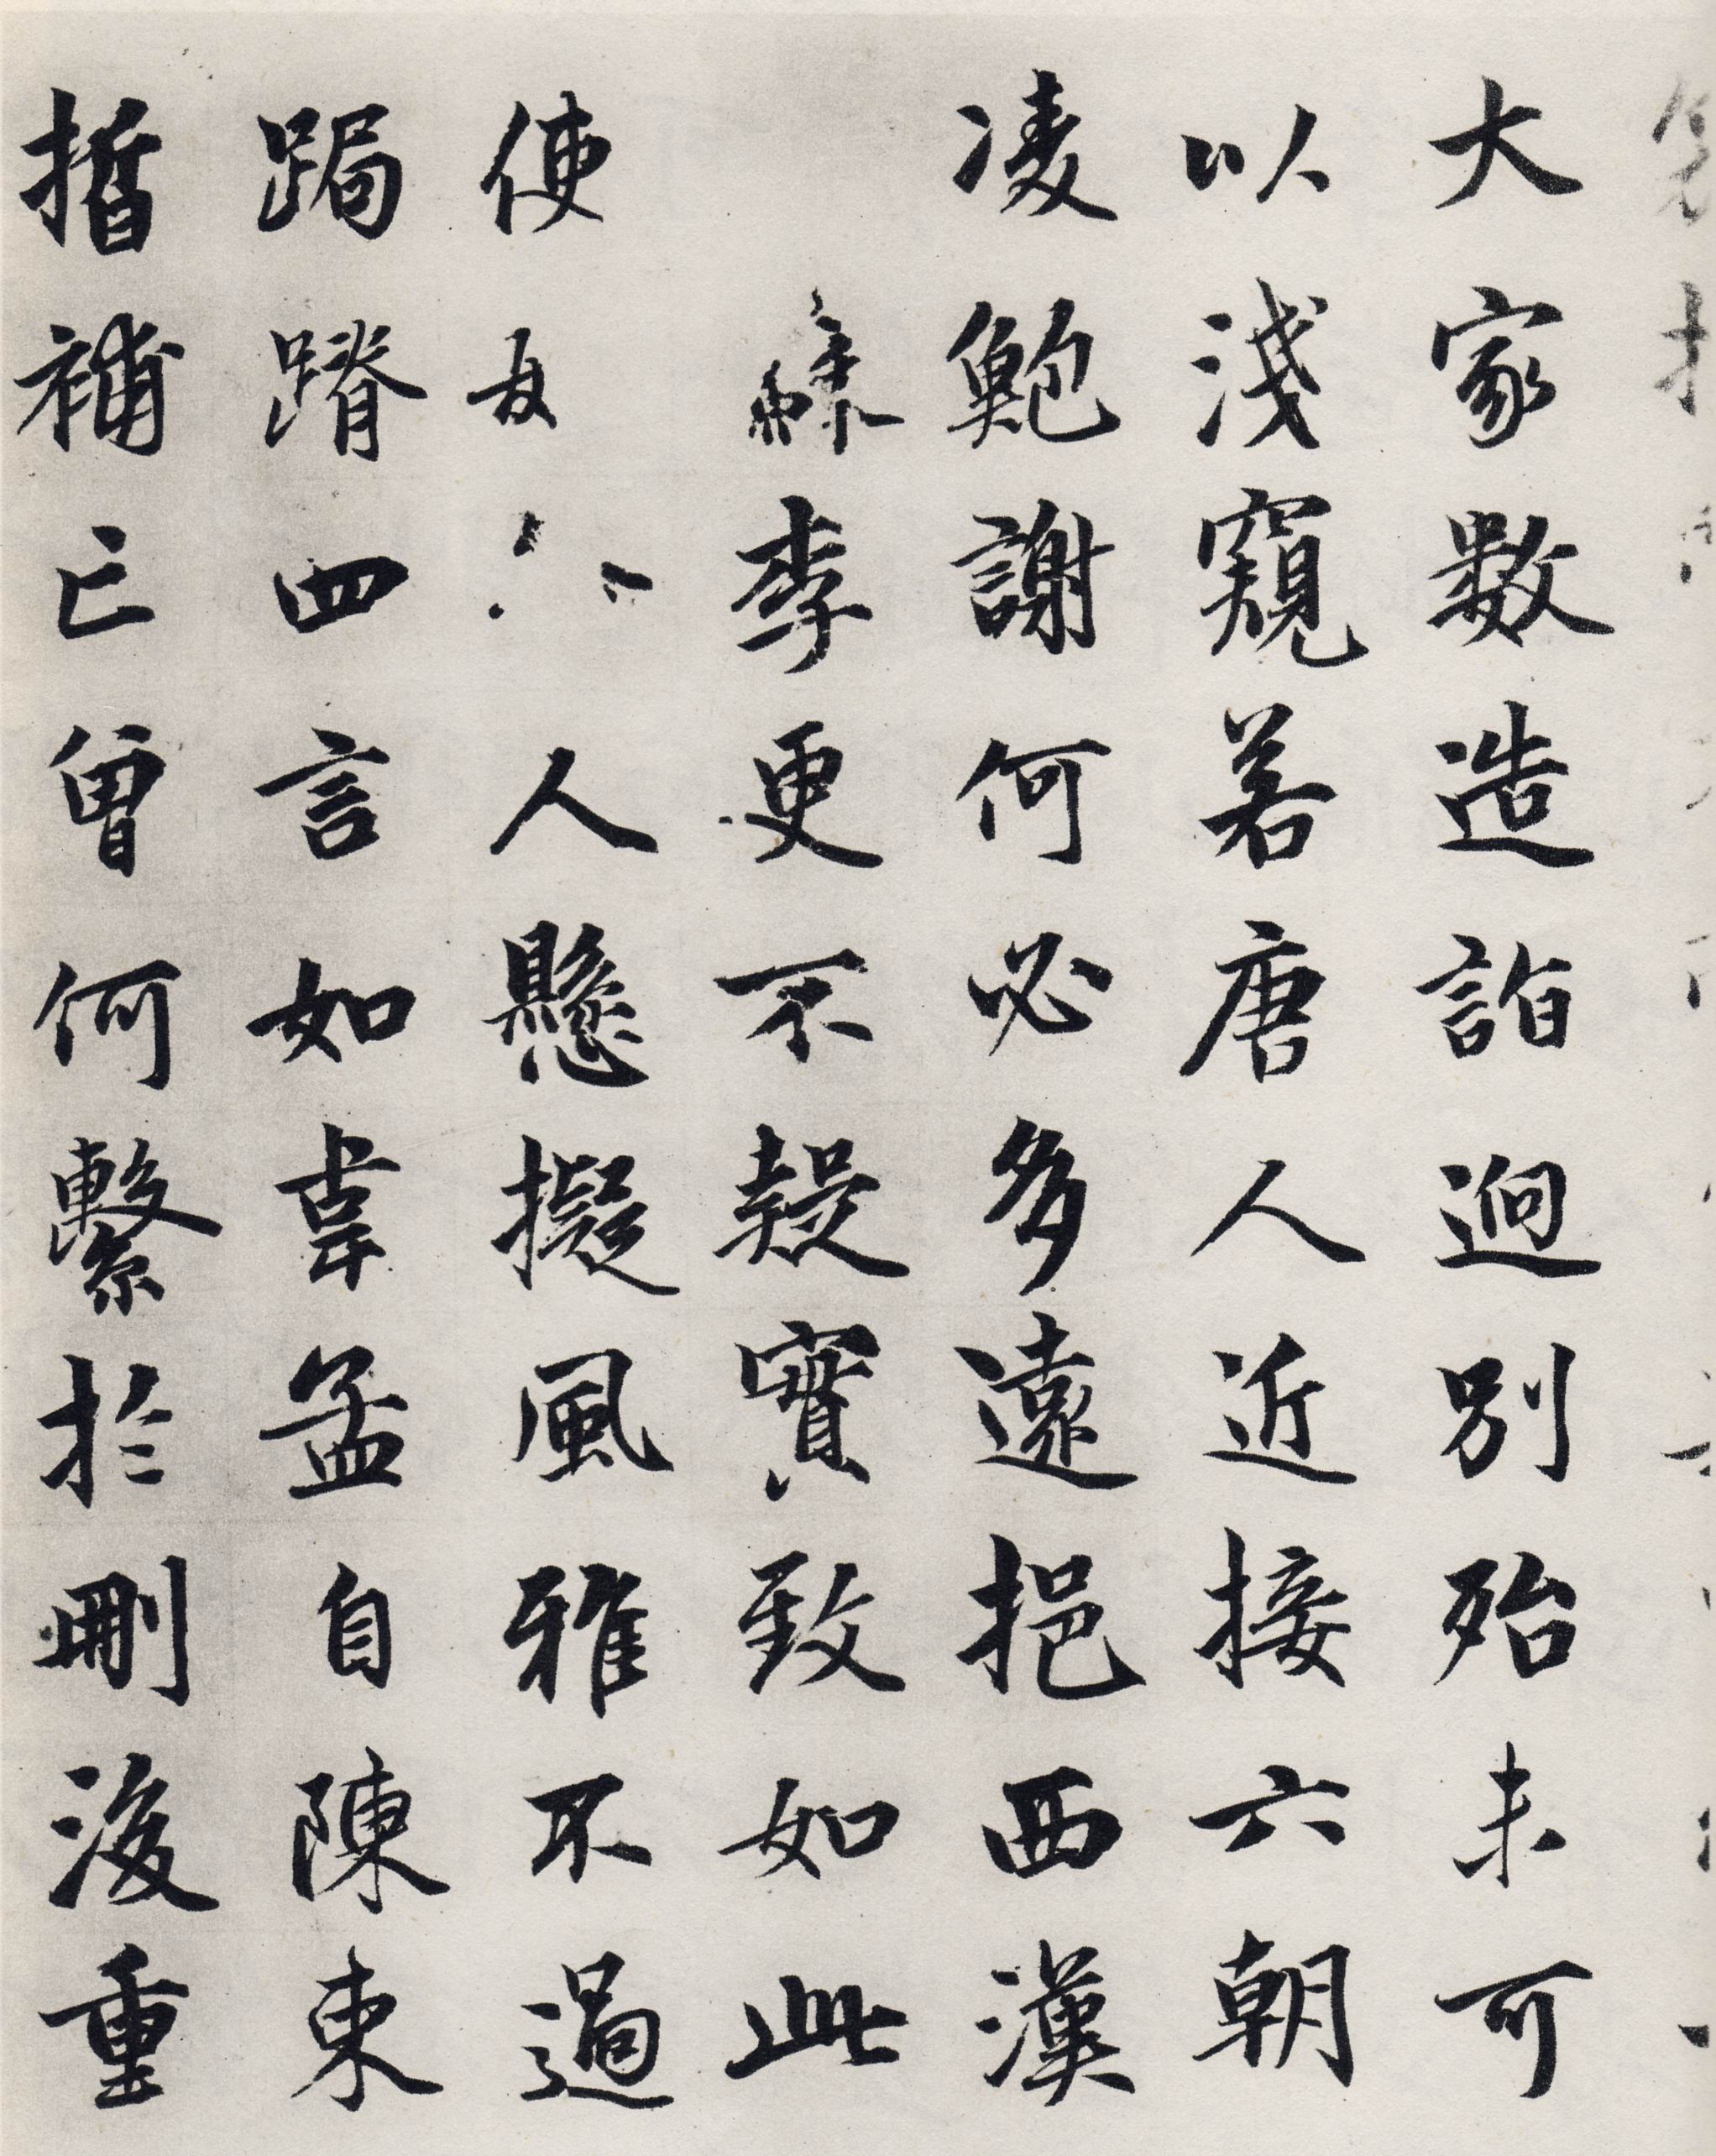 大家數造詣迥別殆未可
以淺窺若唐人近接六朝
凌鮑謝何必多遠挹西漢
蘇李更不疑實致如此
使人懸擬風雅不過
跼蹐四言如韋孟自陳束
晳補亡曾何繫於刪後重